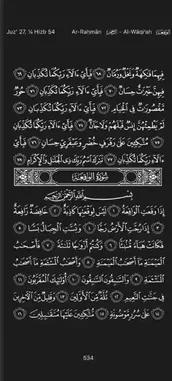 Juz' 27, ¼ Hizb 54 Ar-Rahmān - Al-Wāqi'ah
فِيهِمَا فَٰكِهَةٌ وَنَخْلٌ وَرُمَّانٌ ٦٨ فَبِأَيِّ ءَالَآءِ رَبِّكُمَا تُكَذِّبَانِ ٦٩
فِيهِنَّ خَيْرَٰتٌ حِسَانٌ ٧٠ فَبِأَيِّ ءَالَآءِ رَبِّكُمَا تُكَذِّبَانِ ٧١ حُورٌ
مَّقْصُورَٰتٌ فِي ٱلْخِيَامِ ٧٢ فَبِأَيِّ ءَالَآءِ رَبِّكُمَا تُكَذِّبَانِ ٧٣
لَمْ يَطْمِثْهُنَّ إِنسٌ قَبْلَهُمْ وَلَا جَآنٌّ ٧٤ فَبِأَيِّ ءَالَآءِ رَبِّكُمَا تُكَذِّبَانِ
٧٥ مُتَّكِـِٔينَ عَلَىٰ رَفْرَفٍ خُضْرٍ وَعَبْقَرِيٍّ حِسَانٍ ٧٦ فَبِأَيِّ
ءَالَآءِ رَبِّكُمَا تُكَذِّبَانِ ٧٧ تَبَٰرَكَ ٱسْمُ رَبِّكَ ذِي ٱلْجَلَٰلِ وَٱلْإِكْرَامِ ٧٨
سُورَةُ الوَاقِعَةِ
بِسْمِ ٱللَّهِ ٱلرَّحْمَٰنِ ٱلرَّحِيمِ
إِذَا وَقَعَتِ ٱلْوَاقِعَةُ ١ لَيْسَ لِوَقْعَتِهَا كَاذِبَةٌ ٢ خَافِضَةٌ رَّافِعَةٌ
٣ إِذَا رُجَّتِ ٱلْأَرْضُ رَجًّا ٤ وَبُسَّتِ ٱلْجِبَالُ بَسًّا ٥
فَكَانَتْ هَبَآءً مُّنۢبَثًّا ٦ وَكُنتُمْ أَزْوَٰجًا ثَلَٰثَةً ٧ فَأَصْحَٰبُ
ٱلْمَيْمَنَةِ مَآ أَصْحَٰبُ ٱلْمَيْمَنَةِ ٨ وَأَصْحَٰبُ ٱلْمَشْـَٔمَةِ مَآ أَصْحَٰبُ
ٱلْمَشْـَٔمَةِ ٩ وَٱلسَّٰبِقُونَ ٱلسَّٰبِقُونَ ١٠ أُو۟لَٰٓئِكَ ٱلْمُقَرَّبُونَ ١١
فِي جَنَّٰتِ ٱلنَّعِيمِ ١٢ ثُلَّةٌ مِّنَ ٱلْأَوَّلِينَ ١٣ وَقَلِيلٌ مِّنَ ٱلْءَاخِرِينَ
١٤ عَلَىٰ سُرُرٍ مَّوْضُونَةٍ ١٥ مُّتَّكِـِٔينَ عَلَيْهَا مُتَقَٰبِلِينَ ١٦
534